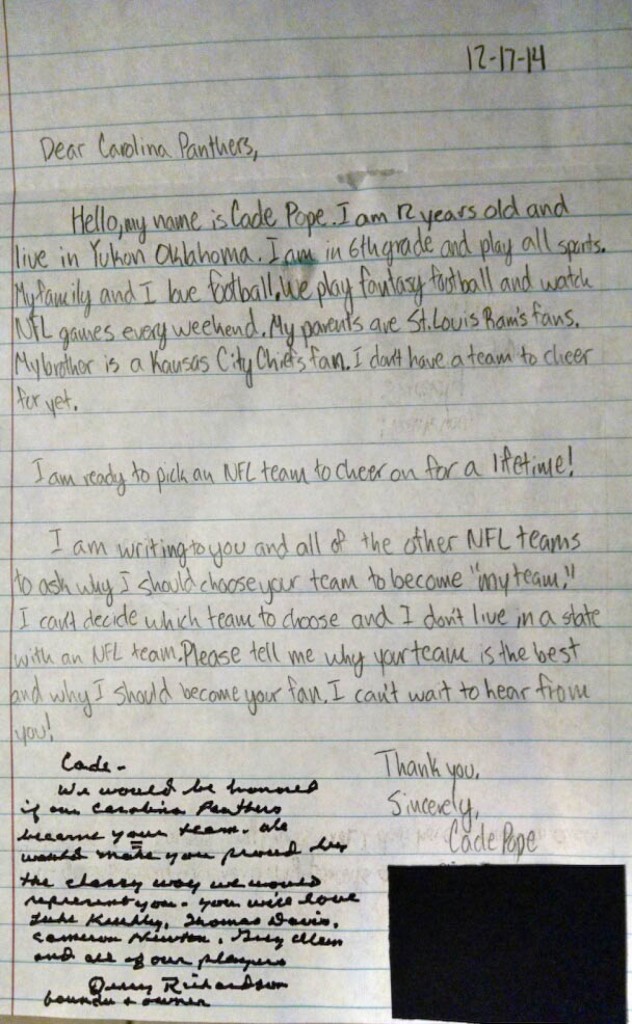 12-17-14
Dear Carolina Panthers,
Hello, my name is Cade Pope. I am 12 years old and
live in Yukon Oklahoma. I am in 6th grade and play all sports.
My family and I love football. We play fantasy football and watch
NFL games every weekend. My parents are St. Louis Ram's fans.
My brother is a Kansas City Chiefs fan. I don't have a team to cheer
for yet.
I am ready to pick an NFL team to cheer on for a lifetime!
I am writing to you and all of the other NFL teams
to ask why I should choose your team to become "my team."
I can't decide which team to choose and I don't live in a state
with an NFL team. Please tell me why your team is the best
and why I should become your fan. I can't wait to hear from
you!
Thank you,
Sincerely,
Cade Pope
Cade-
We would be honored
if our Carolina Panthers
became your team. We
would make you proud by
the classy way we would
represent you. You will love
Luke Kuechly, Thomas Davis,
Cameron Newton, Greg Olsen
and all of our players
Jerry Richardson
founder + owner